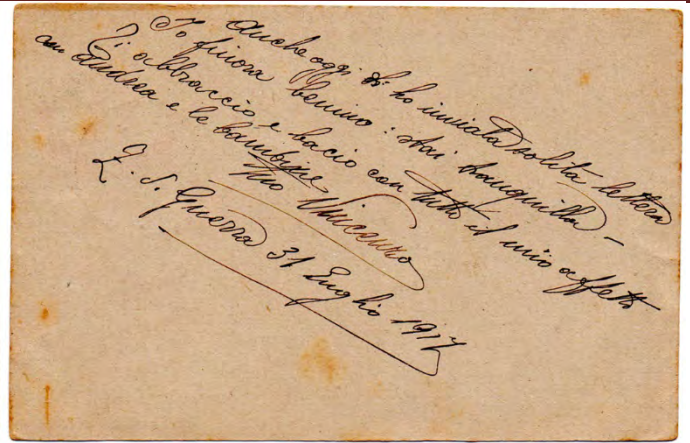 Anche oggi ti ho inviata solita lettera
Io finora benino: stai tranquilla -
Ti abbraccio e bacio con tutto il mio affetto
con Andrea e le bambine
Tuo Vincenzo
Z. d. Guerra 31 Luglio 1917